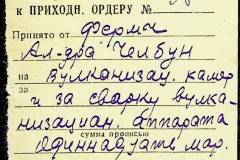 К ПРИХОДН. ОРДЕРУ №
Принято от Фермы
Ал-дра Челбун
на Вулканизац. камер
и за сварку вулка-
низацион. аппарата
сумма прописью
Одиннадцать мар.